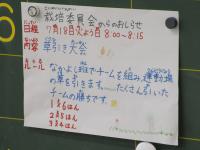 栽培委員会からのおしらせ
日程 7月18日火よう日 8:00〜8:15
内容 草引き大会
ルール
なかよし班でチームを組み、運動場
の草を引きます。たくさん引いた
チームの勝ちです。
1と6はん
2と5はん
3と4はん